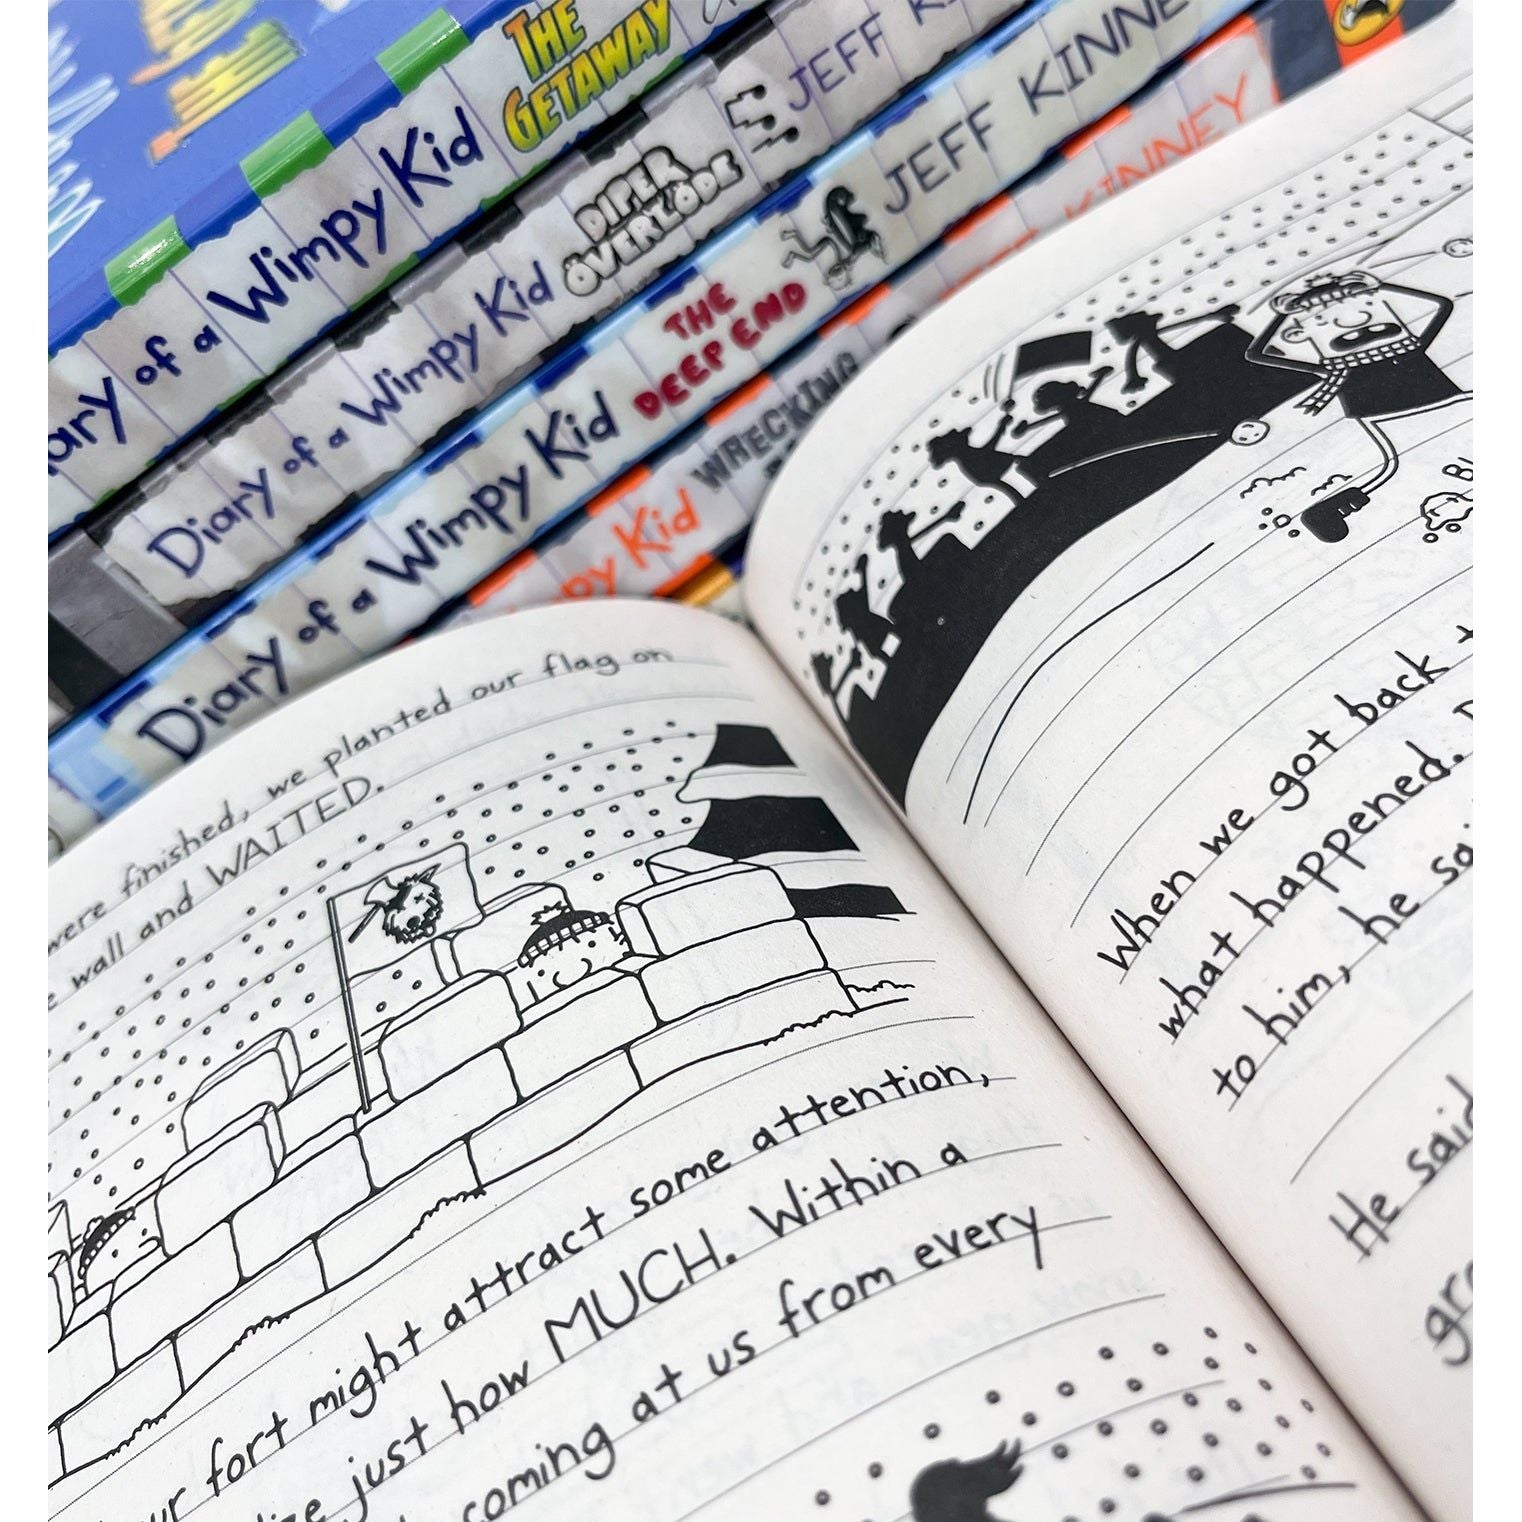 THE
GETAWAY
of a Wimpy Kid
JEFF
Diary of a Wimpy Kid
DIPER
ÖVERLÖDE
JEFF KINNE
Diary of a Wimpy Kid
THE
DEEP END
KINNEY
Kid
WRECKING
were finished, we planted our flag on
wall and WAITED.
fort might attract some attention,
just how MUCH. Within a
coming at us from every
BL
When we got back
what happened.
to him, he
He said